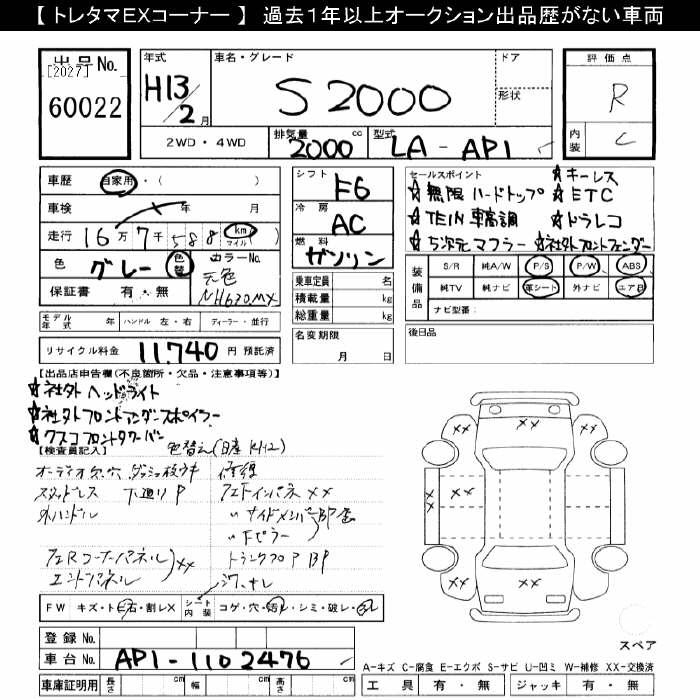 【 トレタマEXコーナー 】 過去1年以上オークション出品歴がない車両
出品No. [2027] 60022
年式 H13/2月
車名・グレード S2000
ドア
形状
評価点 R
内装 C
2WD・4WD
排気量 2000 cc
型式 LA-AP1
車歴 自家用・( )
車検 年 月
走行 16万7千588 km マイル
色 グレー 色替 カラーNo.
元色 NH630MX
保証書 有・無
シフト F6
冷房 AC
燃料 ガソリン
乗車定員 名
積載量 kg
総重量 kg
セールスポイント ☆キーレス
☆無限ハードトップ ☆ETC
☆TEIN車高調 ☆ドラレコ
☆5次元マフラー ☆社外フロントフェンダー
装備品 S/R 純A/W P/S P/W ABS
純TV 純ナビ 革シート 外ナビ エアB
ナビ型番:
モデル年式 年 ハンドル 左・右 ディーラー・並行
リサイクル料金 11,740 円 預託済
名変期限 月 日
後日品
【出品店申告欄(不良箇所・欠品・注意事項等)】
☆社外ヘッドライト
☆社外フロントアンダースポイラー
☆クスコフロントタワーバー
【検査員記入】 色替え(日産KH2)
オーディオ欠、穴 ダッシュ枚ウキ 修復
スタッドレス 下廻りP Fエドインパネ XX
外ハンドル 〃サイドメンバー
〃Fピラー
フェRコーナーパネル XX トランクフロアBP
エンドパネル
FW キズ・ト石・割レX シート内装 コゲ・穴・汚レ・シミ・破レ・スレ
登録No.
車台No. AP1-1102476
車庫証明用 長さ cm 幅 cm 高さ cm
XX XX XX
XX XX
XX XX
スペア
A-キズ C-腐食 E-エクボ S-サビ U-凹ミ W-補修 XX-交換済
工具 有・無 ジャッキ 有・無